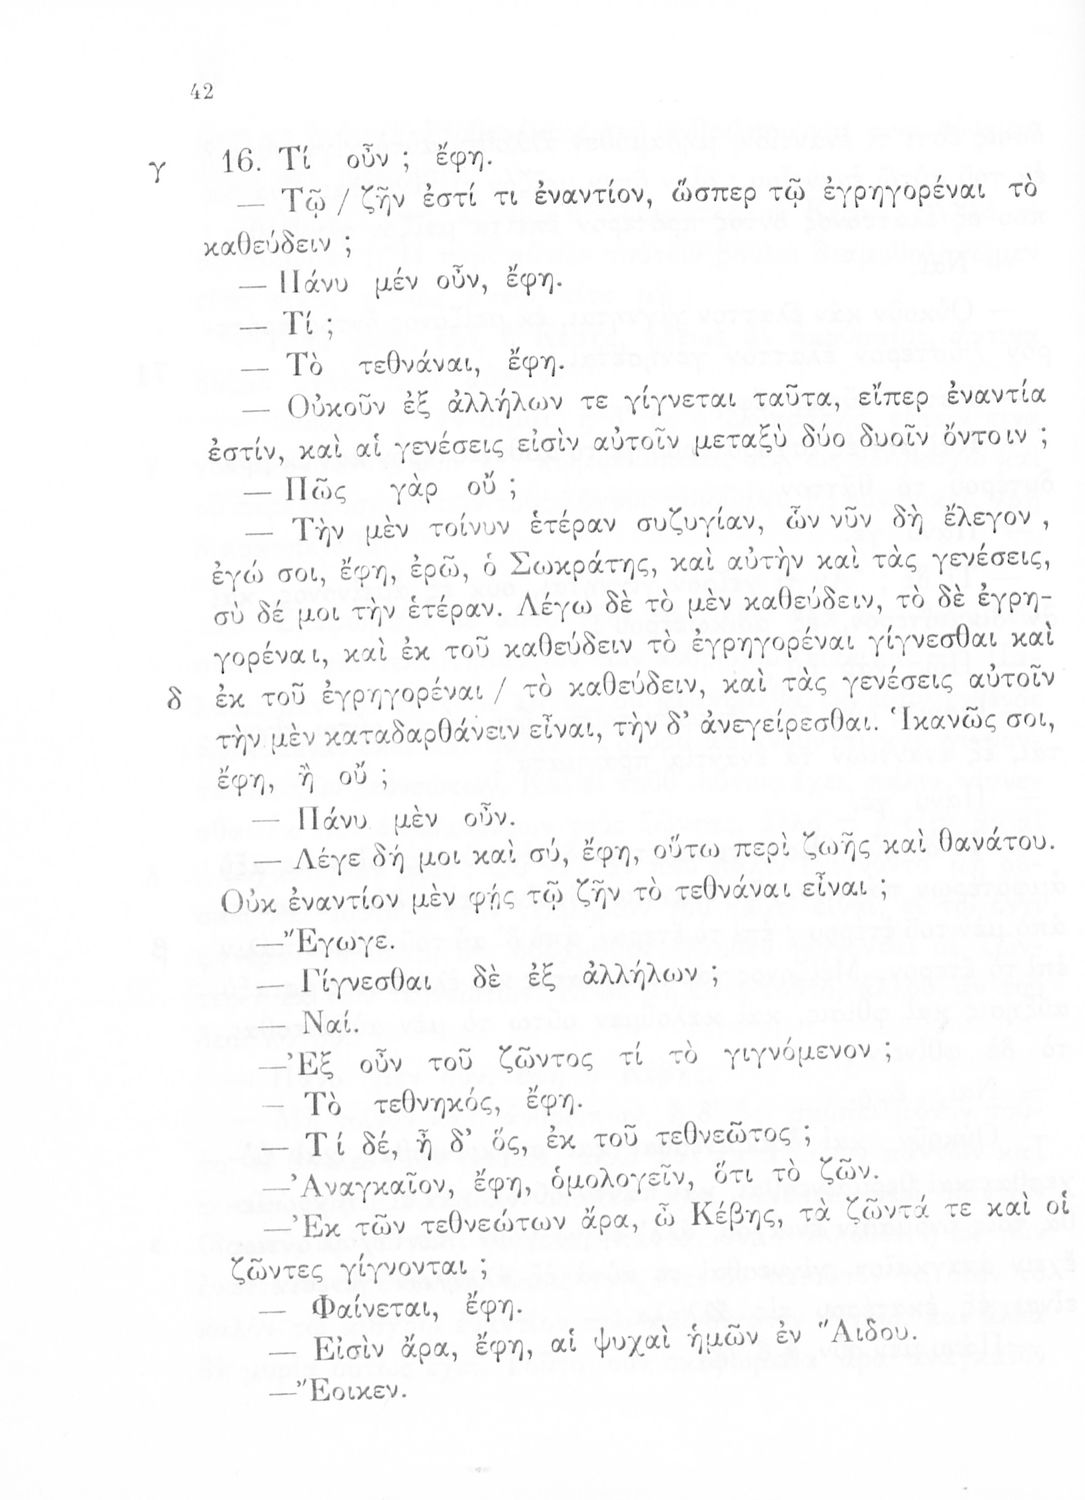 42
γ 16. Τί οὖν ; ἔφη.
— Τῷ / ζῆν ἐστί τι ἐναντίον, ὥσπερ τῷ ἐγρηγορέναι τὸ
καθεύδειν ;
— Πάνυ μέν οὖν, ἔφη.
— Τί ;
— Τὸ τεθνάναι, ἔφη.
— Οὐκοῦν ἐξ ἀλλήλων τε γίγνεται ταῦτα, εἴπερ ἐναντία
ἐστίν, καὶ αἱ γενέσεις εἰσὶν αὐτοῖν μεταξὺ δύο δυοῖν ὄντοιν ;
— Πῶς γὰρ οὔ ;
— Τὴν μὲν τοίνυν ἑτέραν συζυγίαν, ὧν νῦν δὴ ἔλεγον ,
ἐγώ σοι, ἔφη, ἐρῶ, ὁ Σωκράτης, καὶ αὐτὴν καὶ τὰς γενέσεις,
σὺ δέ μοι τὴν ἑτέραν. Λέγω δὲ τὸ μὲν καθεύδειν, τὸ δὲ ἐγρη-
γορέναι, καὶ ἐκ τοῦ καθεύδειν τὸ ἐγρηγορέναι γίγνεσθαι καὶ
δ ἐκ τοῦ ἐγρηγορέναι / τὸ καθεύδειν, καὶ τὰς γενέσεις αὐτοῖν
τὴν μὲν καταδαρθάνειν εἶναι, τὴν δ’ ἀνεγείρεσθαι. Ἱκανῶς σοι,
ἔφη, ἢ οὔ ;
— Πάνυ μὲν οὖν.
— Λέγε δή μοι καὶ σύ, ἔφη, οὕτω περὶ ζωῆς καὶ θανάτου.
Οὐκ ἐναντίον μὲν φῂς τῷ ζῆν τὸ τεθνάναι εἶναι ;
—Ἔγωγε.
— Γίγνεσθαι δὲ ἐξ ἀλλήλων ;
— Ναί.
—Ἐξ οὖν τοῦ ζῶντος τί τὸ γιγνόμενον ;
— Τὸ τεθνηκός, ἔφη.
— Τί δέ, ἦ δ’ ὅς, ἐκ τοῦ τεθνεῶτος ;
—Ἀναγκαῖον, ἔφη, ὁμολογεῖν, ὅτι τὸ ζῶν.
—Ἐκ τῶν τεθνεώτων ἄρα, ὦ Κέβης, τὰ ζῶντά τε καὶ οἱ
ζῶντες γίγνονται ;
— Φαίνεται, ἔφη.
— Εἰσὶν ἄρα, ἔφη, αἱ ψυχαὶ ἡμῶν ἐν Ἅιδου.
—Ἔοικεν.